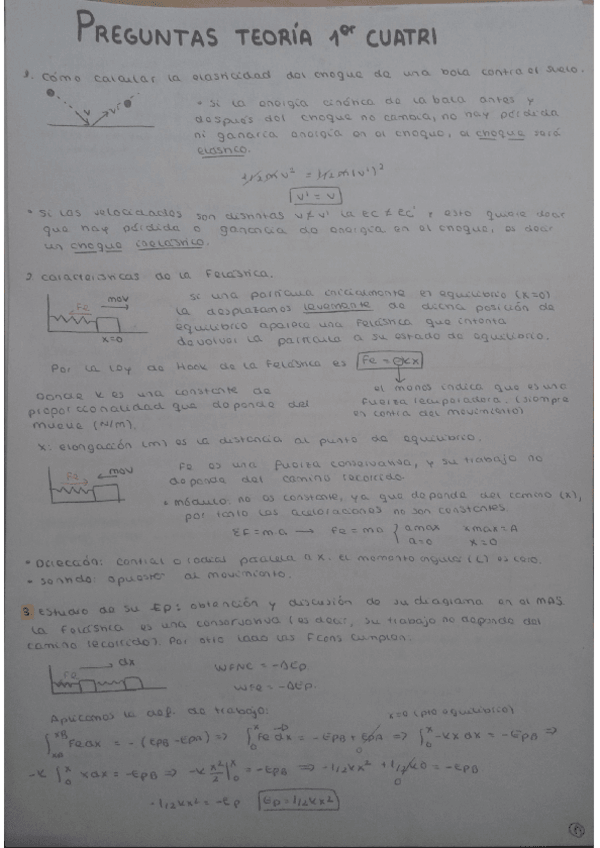 PREGUNTAS TEORÍA 1er CUATRI
1. Cómo calcular la elasticidad del choque de una bola contra el suelo.
• Si la energía cinética de la bola antes y
después del choque no cambia, no hay pérdida
ni ganancia energía en el choque, el choque será
elástico.
v v'
1/2 m v² = 1/2 m (v')²
v' = v
• Si las velocidades son distintas v ≠ v' la Ec ≠ Ec' y esto quiere decir
que hay pérdida o ganancia de energía en el choque, es decir
un choque inelástico.
2. Características de la Felástica.
Fe mov
x=0
Si una partícula inicialmente en equilibrio (x=0)
la desplazamos levemente de dicha posición de
equilibrio aparece una Felástica que intenta
devolver la partícula a su estado de equilibrio.
Por la Ley de Hook de la Felástica es Fe = -kx
Donde K es una constante de
proporcionalidad que depende del
muelle (N/m).
el menos indica que es una
fuerza recuperadora. (siempre
en contra del movimiento)
x: elongación (m) es la distancia al punto de equilibrio.
Fe mov
Fe es una fuerza conservativa, y su trabajo no
depende del camino recorrido.
• módulo: no es constante, ya que depende del camino (x),
por tanto las aceleraciones no son constantes.
ΣF = m·a → Fe = ma { amax xmax = A
a=0 x=0
• Dirección: central o radial paralela a x. el momento angular (L) es cero.
• Sentido: opuesto al movimiento.
3. Estudio de su Ep: obtención y discusión de su diagrama en el MAS.
La Felástica es una conservativa (es decir, su trabajo no depende del
camino recorrido). Por otro lado las Fcons cumplen:
Fe dx
WFNC = -ΔEp.
WFe = -ΔEp.
Aplicamos la def. de trabajo: x=0 (pto equilibrio)
∫xA xB Fe dx = -(EpB - EpA) ⇒ ∫0 x Fe dx = -EpB + EpA ⇒ ∫0 x -kx dx = -EpB ⇒
-k ∫0 x x dx = -EpB ⇒ -k x²/2 |0 x = -EpB ⇒ -1/2 kx² + 1/2 k0 = -EpB
0
-1/2 kx² = -Ep Ep = 1/2 kx²